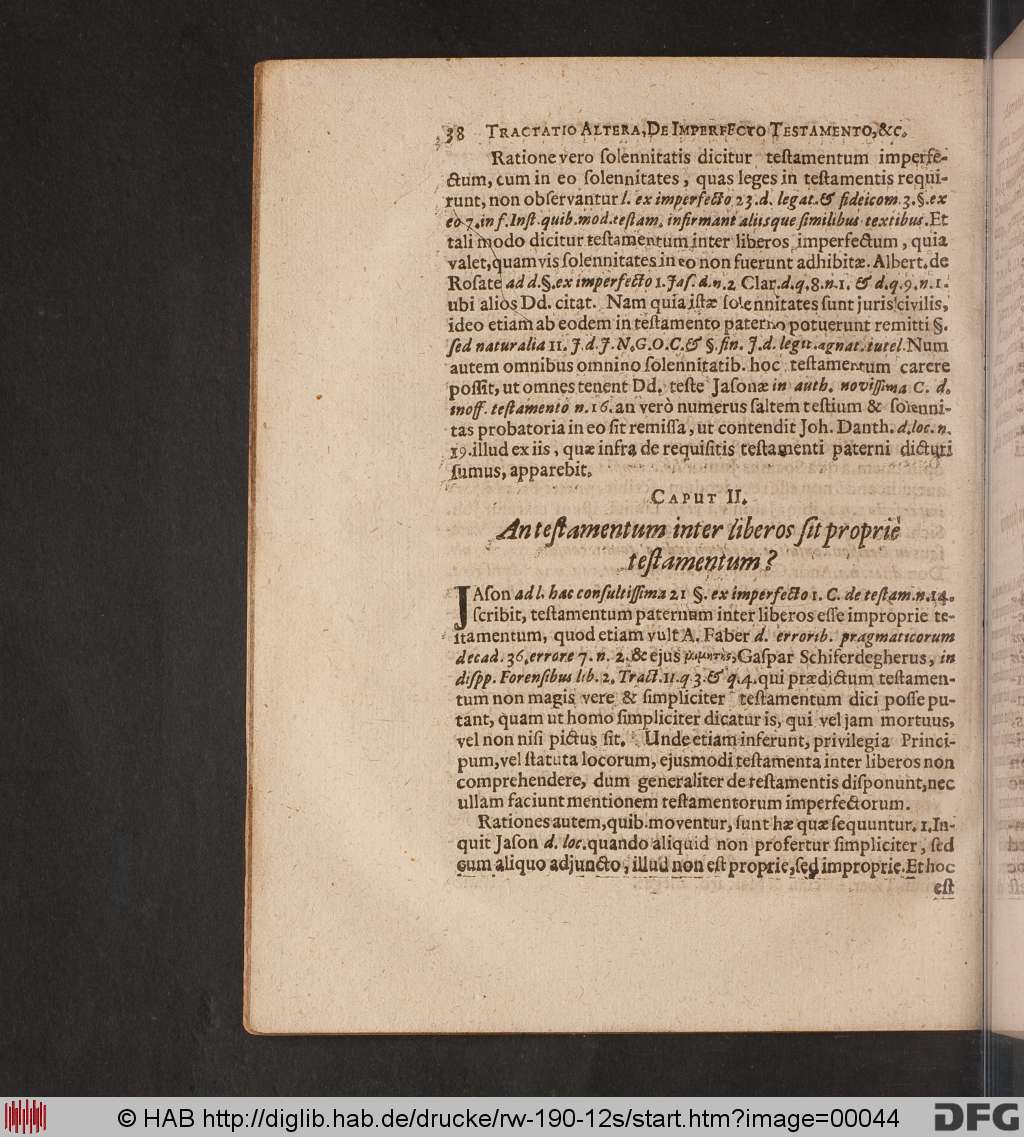 38 TRACTATIO ALTERA, DE IMPERFECTO TESTAMENTO, &c.
Ratione vero ſolennitatis dicitur teſtamentum imperfe-
ctum, cum in eo ſolennitates, quas leges in teſtamentis requi-
runt, non obſervantur l. ex imperfecto 23. d. legat. & fideicom. 3. §. ex
eo 7. in f. Inſt. quib. mod. teſtam. infirmant aliisque ſimilibus textibus. Et
tali modo dicitur teſtamentum inter liberos imperfectum, quia
valet, quamvis ſolennitates in eo non fuerunt adhibitæ. Albert. de
Roſate ad d. §. ex imperfecto 1. Jaſ. d. n. 2 Clar. d. q. 8. n. 1. & d. q. 9. n. 1.
ubi alios Dd. citat. Nam quia iſtæ ſolennitates ſunt juris civilis,
ideo etiam ab eodem in teſtamento paterno potuerunt remitti §.
ſed naturalia 11. J. d. J. N. G. O. C. & §. fin. J. d. legit. agnat. tutel. Num
autem omnibus omnino ſolennitatib. hoc teſtamentum carere
poſſit, ut omnes tenent Dd. teſte Jaſonæ in auth. noviſſima C. d.
inoff. teſtamento n. 16. an verò numerus ſaltem teſtium & ſolenni-
tas probatoria in eo ſit remiſſa, ut contendit Joh. Danth. d. loc. n.
19. illud ex iis, quæ infra de requiſitis teſtamenti paterni dicturi
ſumus, apparebit.
CAPUT II.
An teſtamentum inter liberos ſit propriè
teſtamentum?
JAſon ad l. hac conſultiſſima 21 §. ex imperfecto 1. C. de teſtam. n. 14.
ſcribit, teſtamentum paternum inter liberos eſſe improprie te-
ſtamentum, quod etiam vult A. Faber d. errorib. pragmaticorum
decad. 36. errore 7. n. 2. & ejus μιμητὴς, Gaſpar Schiferdegherus, in
diſpp. Forenſibus lib. 2. Tract. 11. q 3. & q. 4. qui prædictum teſtamen-
tum non magis vere & ſimpliciter teſtamentum dici poſſe pu-
tant, quam ut homo ſimpliciter dicatur is, qui vel jam mortuus,
vel non niſi pictus ſit. Unde etiam inferunt, privilegia Princi-
pum, vel ſtatuta locorum, ejusmodi teſtamenta inter liberos non
comprehendere, dum generaliter de teſtamentis diſponunt, nec
ullam faciunt mentionem teſtamentorum imperfectorum.
Rationes autem, quib. moventur, ſunt hæ quæ ſequuntur. 1. In-
quit Jaſon d. loc. quando aliquid non profertur ſimpliciter, ſed
cum aliquo adjuncto, illud non eſt proprie, ſed improprie. Et hoc
eſt
© HAB http://diglib.hab.de/drucke/rw-190-12s/start.htm?image=00044
DFG